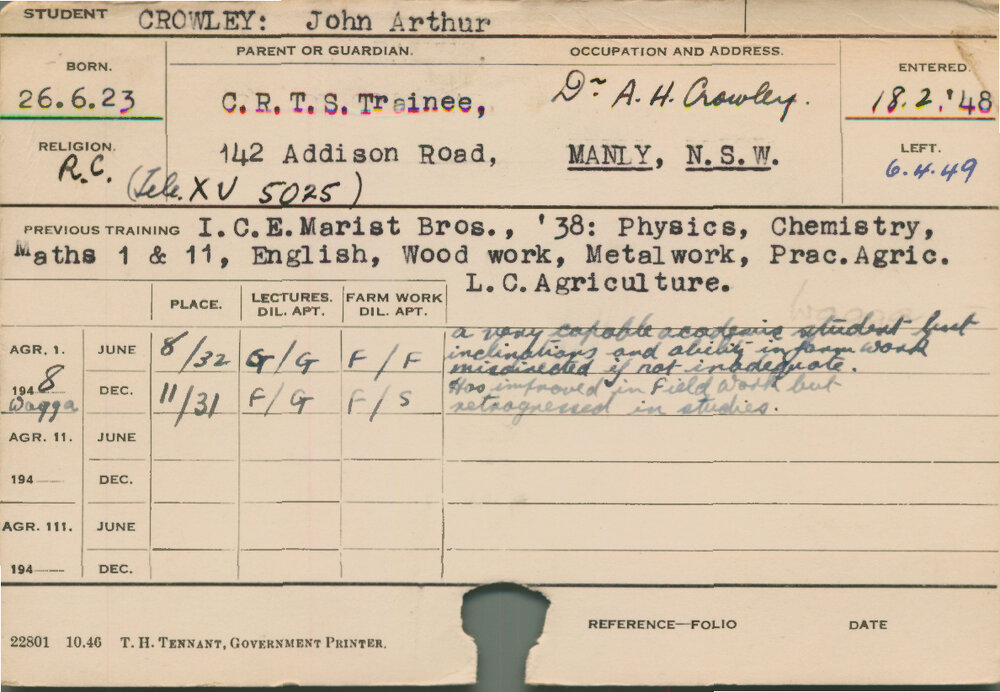 STUDENT CROWLEY: John Arthur
PARENT OR GUARDIAN. OCCUPATION AND ADDRESS.
BORN. ENTERED.
26.6.23 C.R.T.S.Trainee, Dr A.H. Crowley. 18.2.'48
RELIGION. 142 Addison Road, MANLY, N.S.W. LEFT.
R.C. (Tele. XV 5025) 6.4.49
PREVIOUS TRAINING I.C.E.Marist Bros., '38: Physics, Chemistry,
Maths 1 & 11, English, Wood work, Metalwork, Prac.Agric.
L.C.Agriculture.
PLACE. LECTURES. DIL. APT. FARM WORK DIL. APT.
a very capable academic student but
AGR. 1. JUNE 8/32 G/G F/F inclinations and ability in farm work
misdirected if not inadequate.
1948 DEC. 11/31 F/G F/S Has improved in Field Work but
Wagga retrogressed in studies.
AGR. 11. JUNE
194 DEC.
AGR. 111. JUNE
194 DEC.
REFERENCE—FOLIO DATE
22801 10.46 T. H. TENNANT, GOVERNMENT PRINTER.